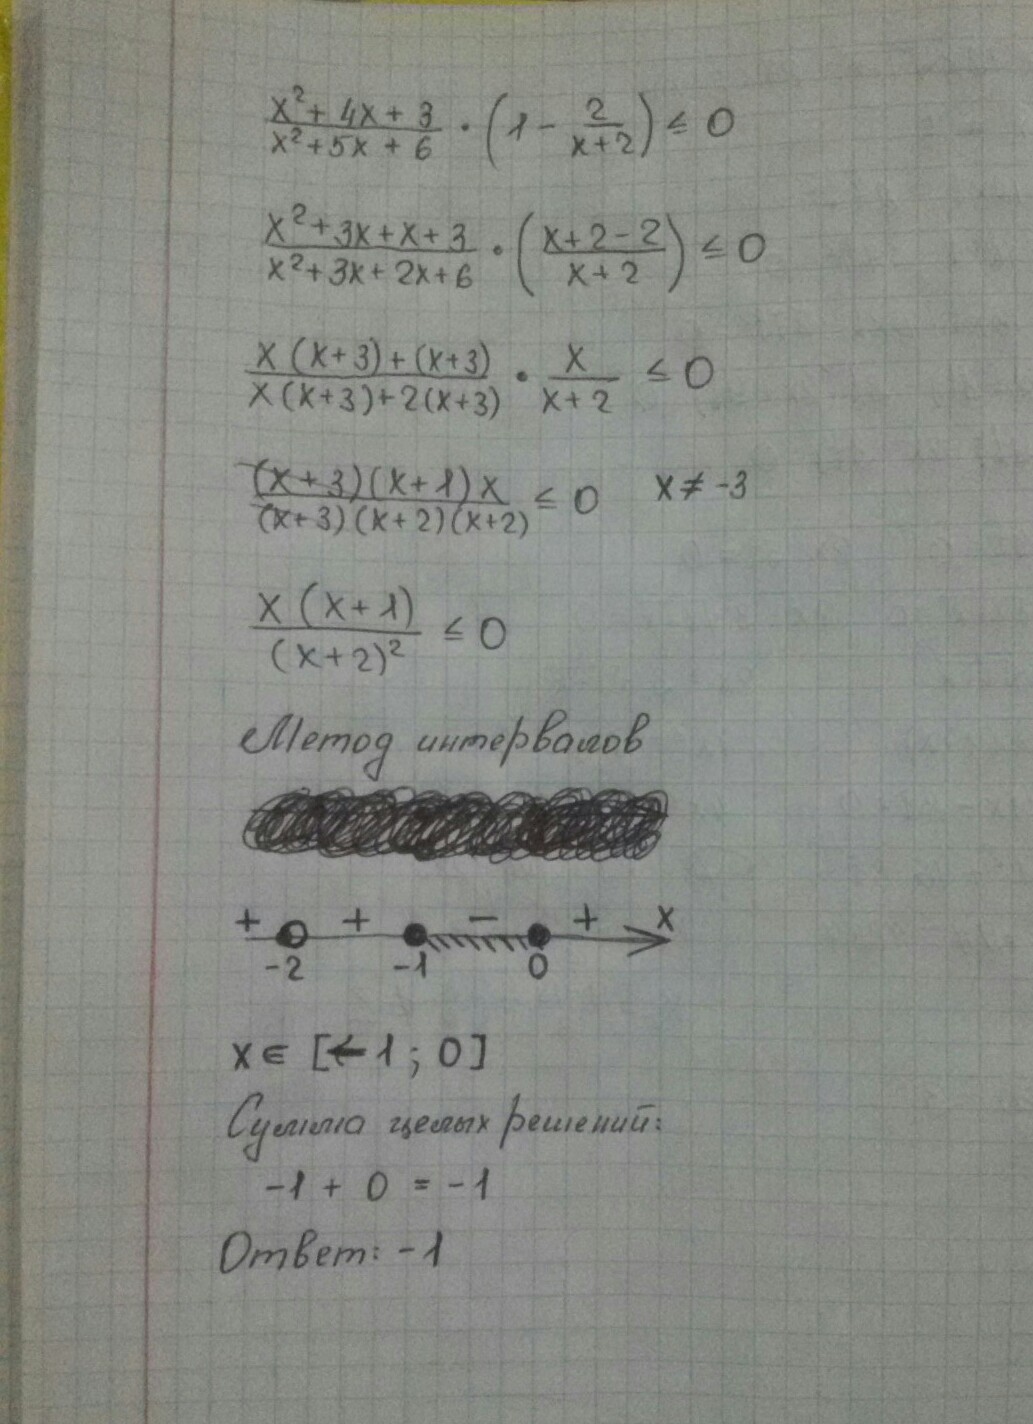 (x²+4x+3)/(x²+5x+6) · (1 - 2/(x+2)) ≤ 0
(x²+3x+x+3)/(x²+3x+2x+6) · ((x+2-2)/(x+2)) ≤ 0
(x(x+3)+(x+3))/(x(x+3)+2(x+3)) · x/(x+2) ≤ 0
((x+3)(x+1)x)/((x+3)(x+2)(x+2)) ≤ 0 x ≠ -3
(x(x+1))/((x+2)²) ≤ 0
Метод интервалов
+ + - + x
-2 -1 0
x ∈ [-1; 0]
Сумма целых решений:
-1 + 0 = -1
Ответ: -1